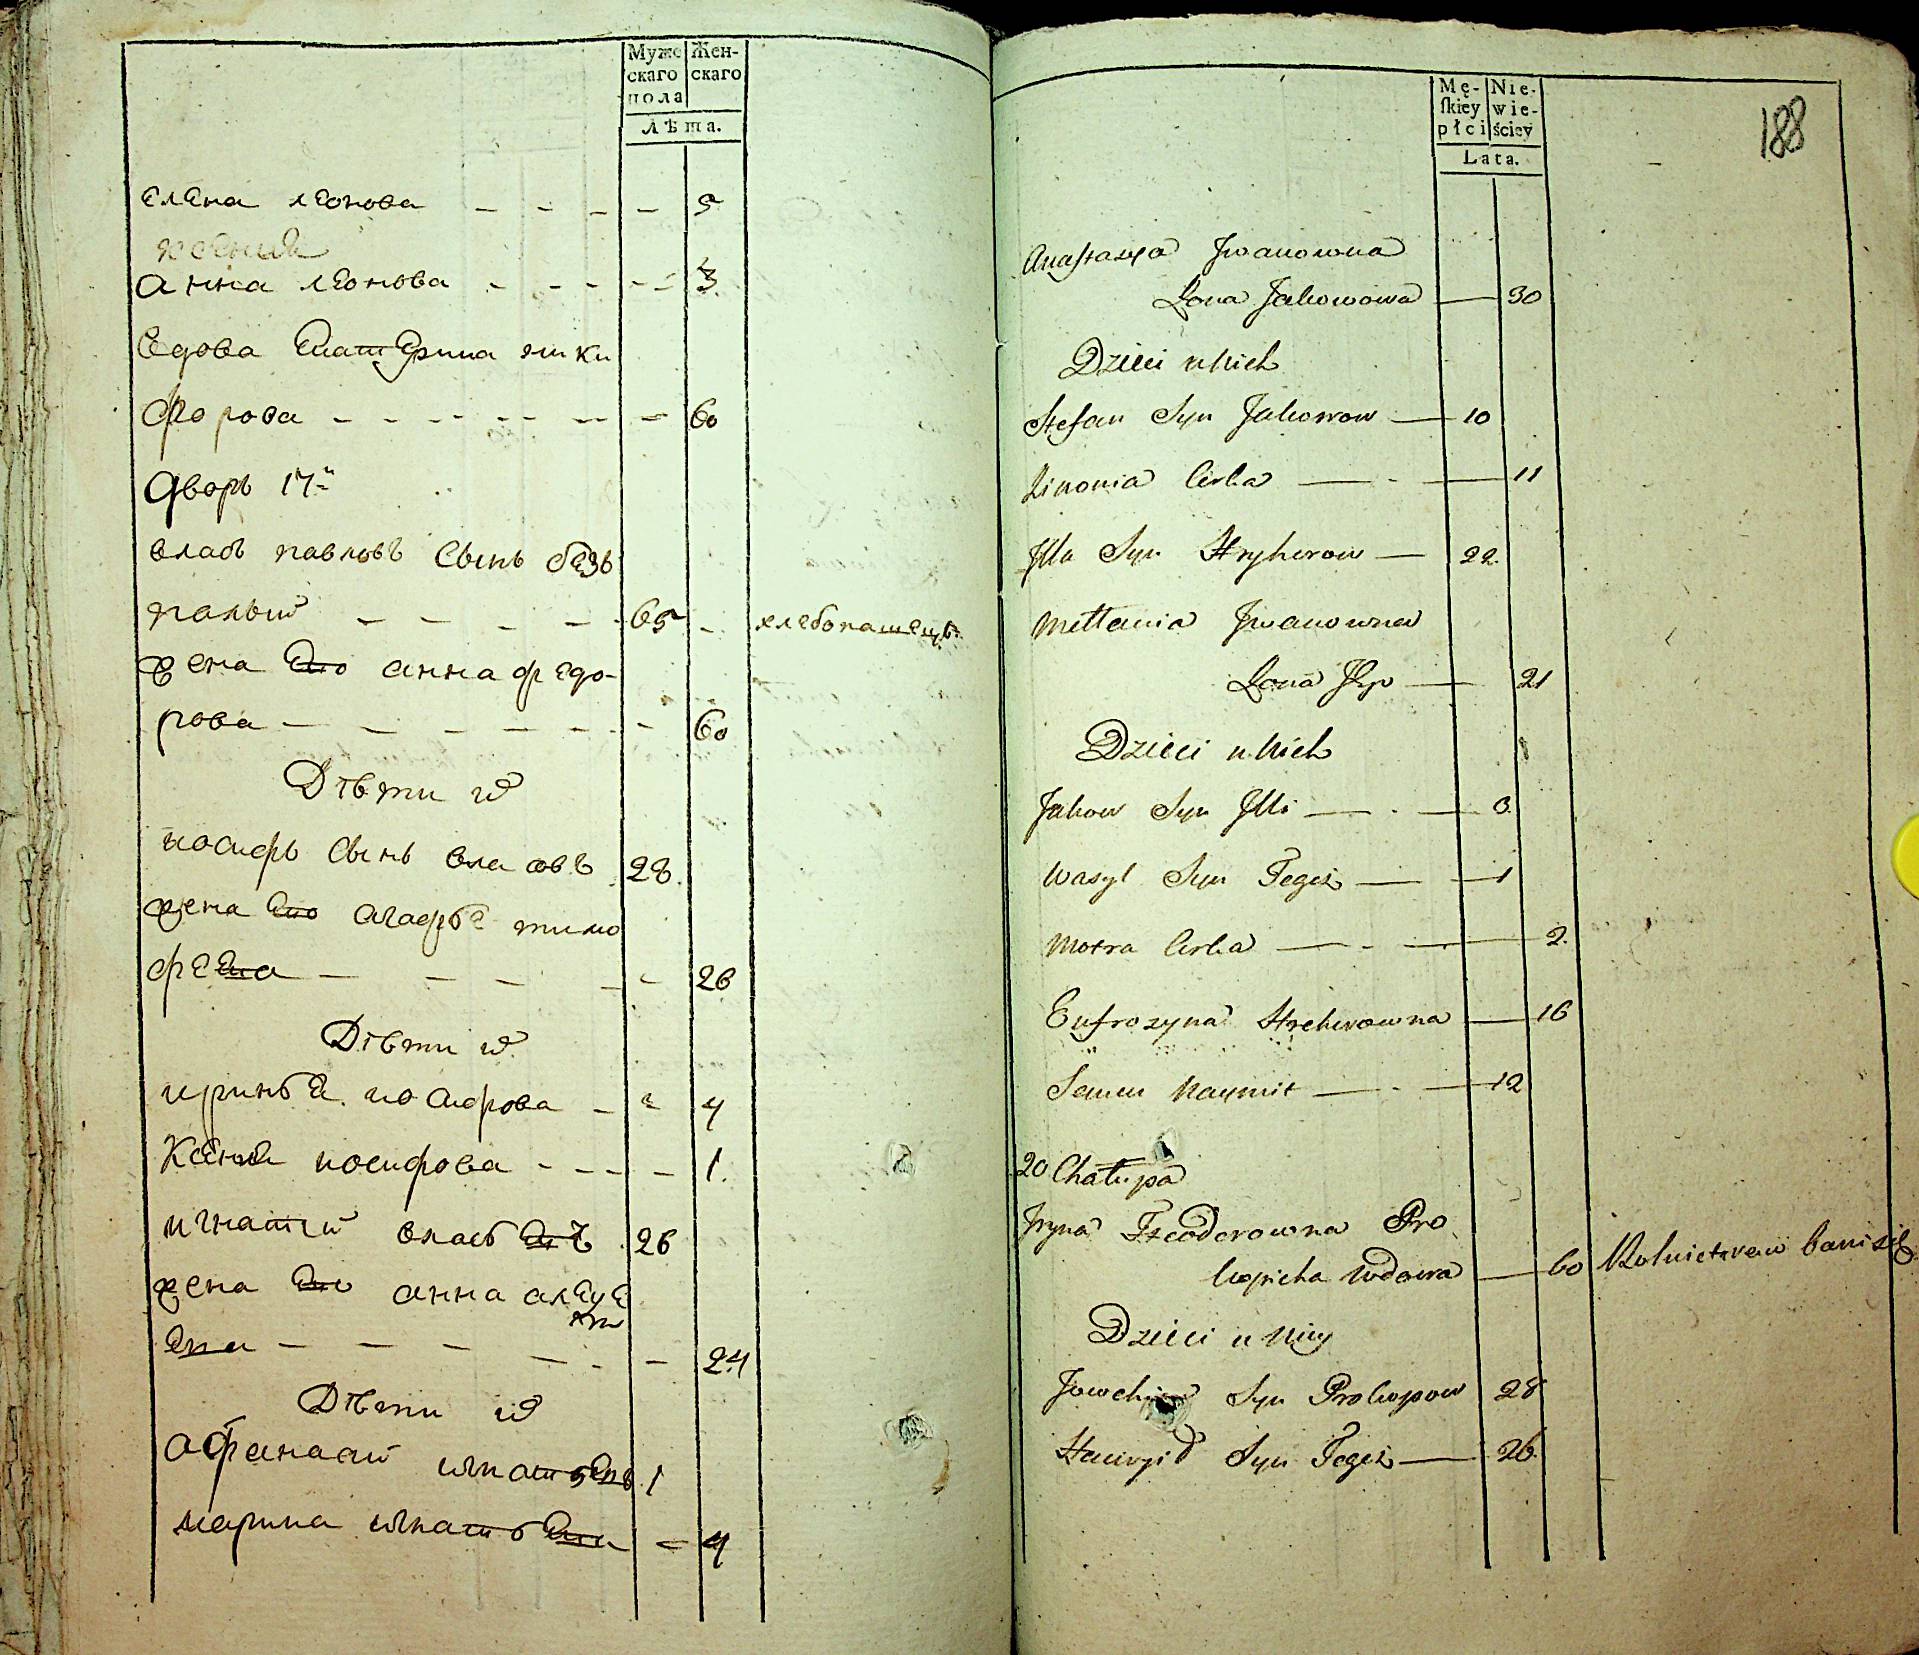 Муже Жен-
скаго скаго
пола
Лѣта.
Елена леонова - - - - 5
ксения
анна леонова - - - - - 3
Вдова Екатерина ники
форова - - - - - - - 60
Дворъ 17й
власъ павловъ Сынъ безъ
палый - - - - 65 - хлебопашецъ
жена Его анна федо-
рова - - - - - - - 60
Дѣти их
иосифъ Сынъ власовъ 28
жена Его агафья тимо
феева - - - - - 26
Дѣти их
ирина иосифова - - 4
Ксения иосифова - - - - 1.
игнатий власовъ 26
жена Его анна алеуе
ева - - - - - - 24
Дѣти их
афанасий игнатьевъ 1
марина игнатьева - 4
Mę- Nie-
ſkiey wie-
płci ściey
Lata.
188
Anastazya Jwanowna
Żona Jakowowa — 30
Dzieci u Nich
Stefan Syn Jakowow — 10
Zinowia Córka — - — 11
Jlla Syn Hryhorow — 22
Mellania Jwanowna
Żona Jlly — 21
Dzieci u Nich
Jakow Syn Jlli — - — 3
Wasyl Syn Tegoż — — 1
Motra Córka — - — 2.
Eufrozyna Hrehorowna — 16
Semen Naymit — - — 12
20 Chałupa
Jryna Fteodorowna Pro
kopicha Wdowa — 60 Rolnictwem bawi się
Dzieci u Niey
Jowchim Syn Prokopow 28
Hawryło Syn Tegoż — 26